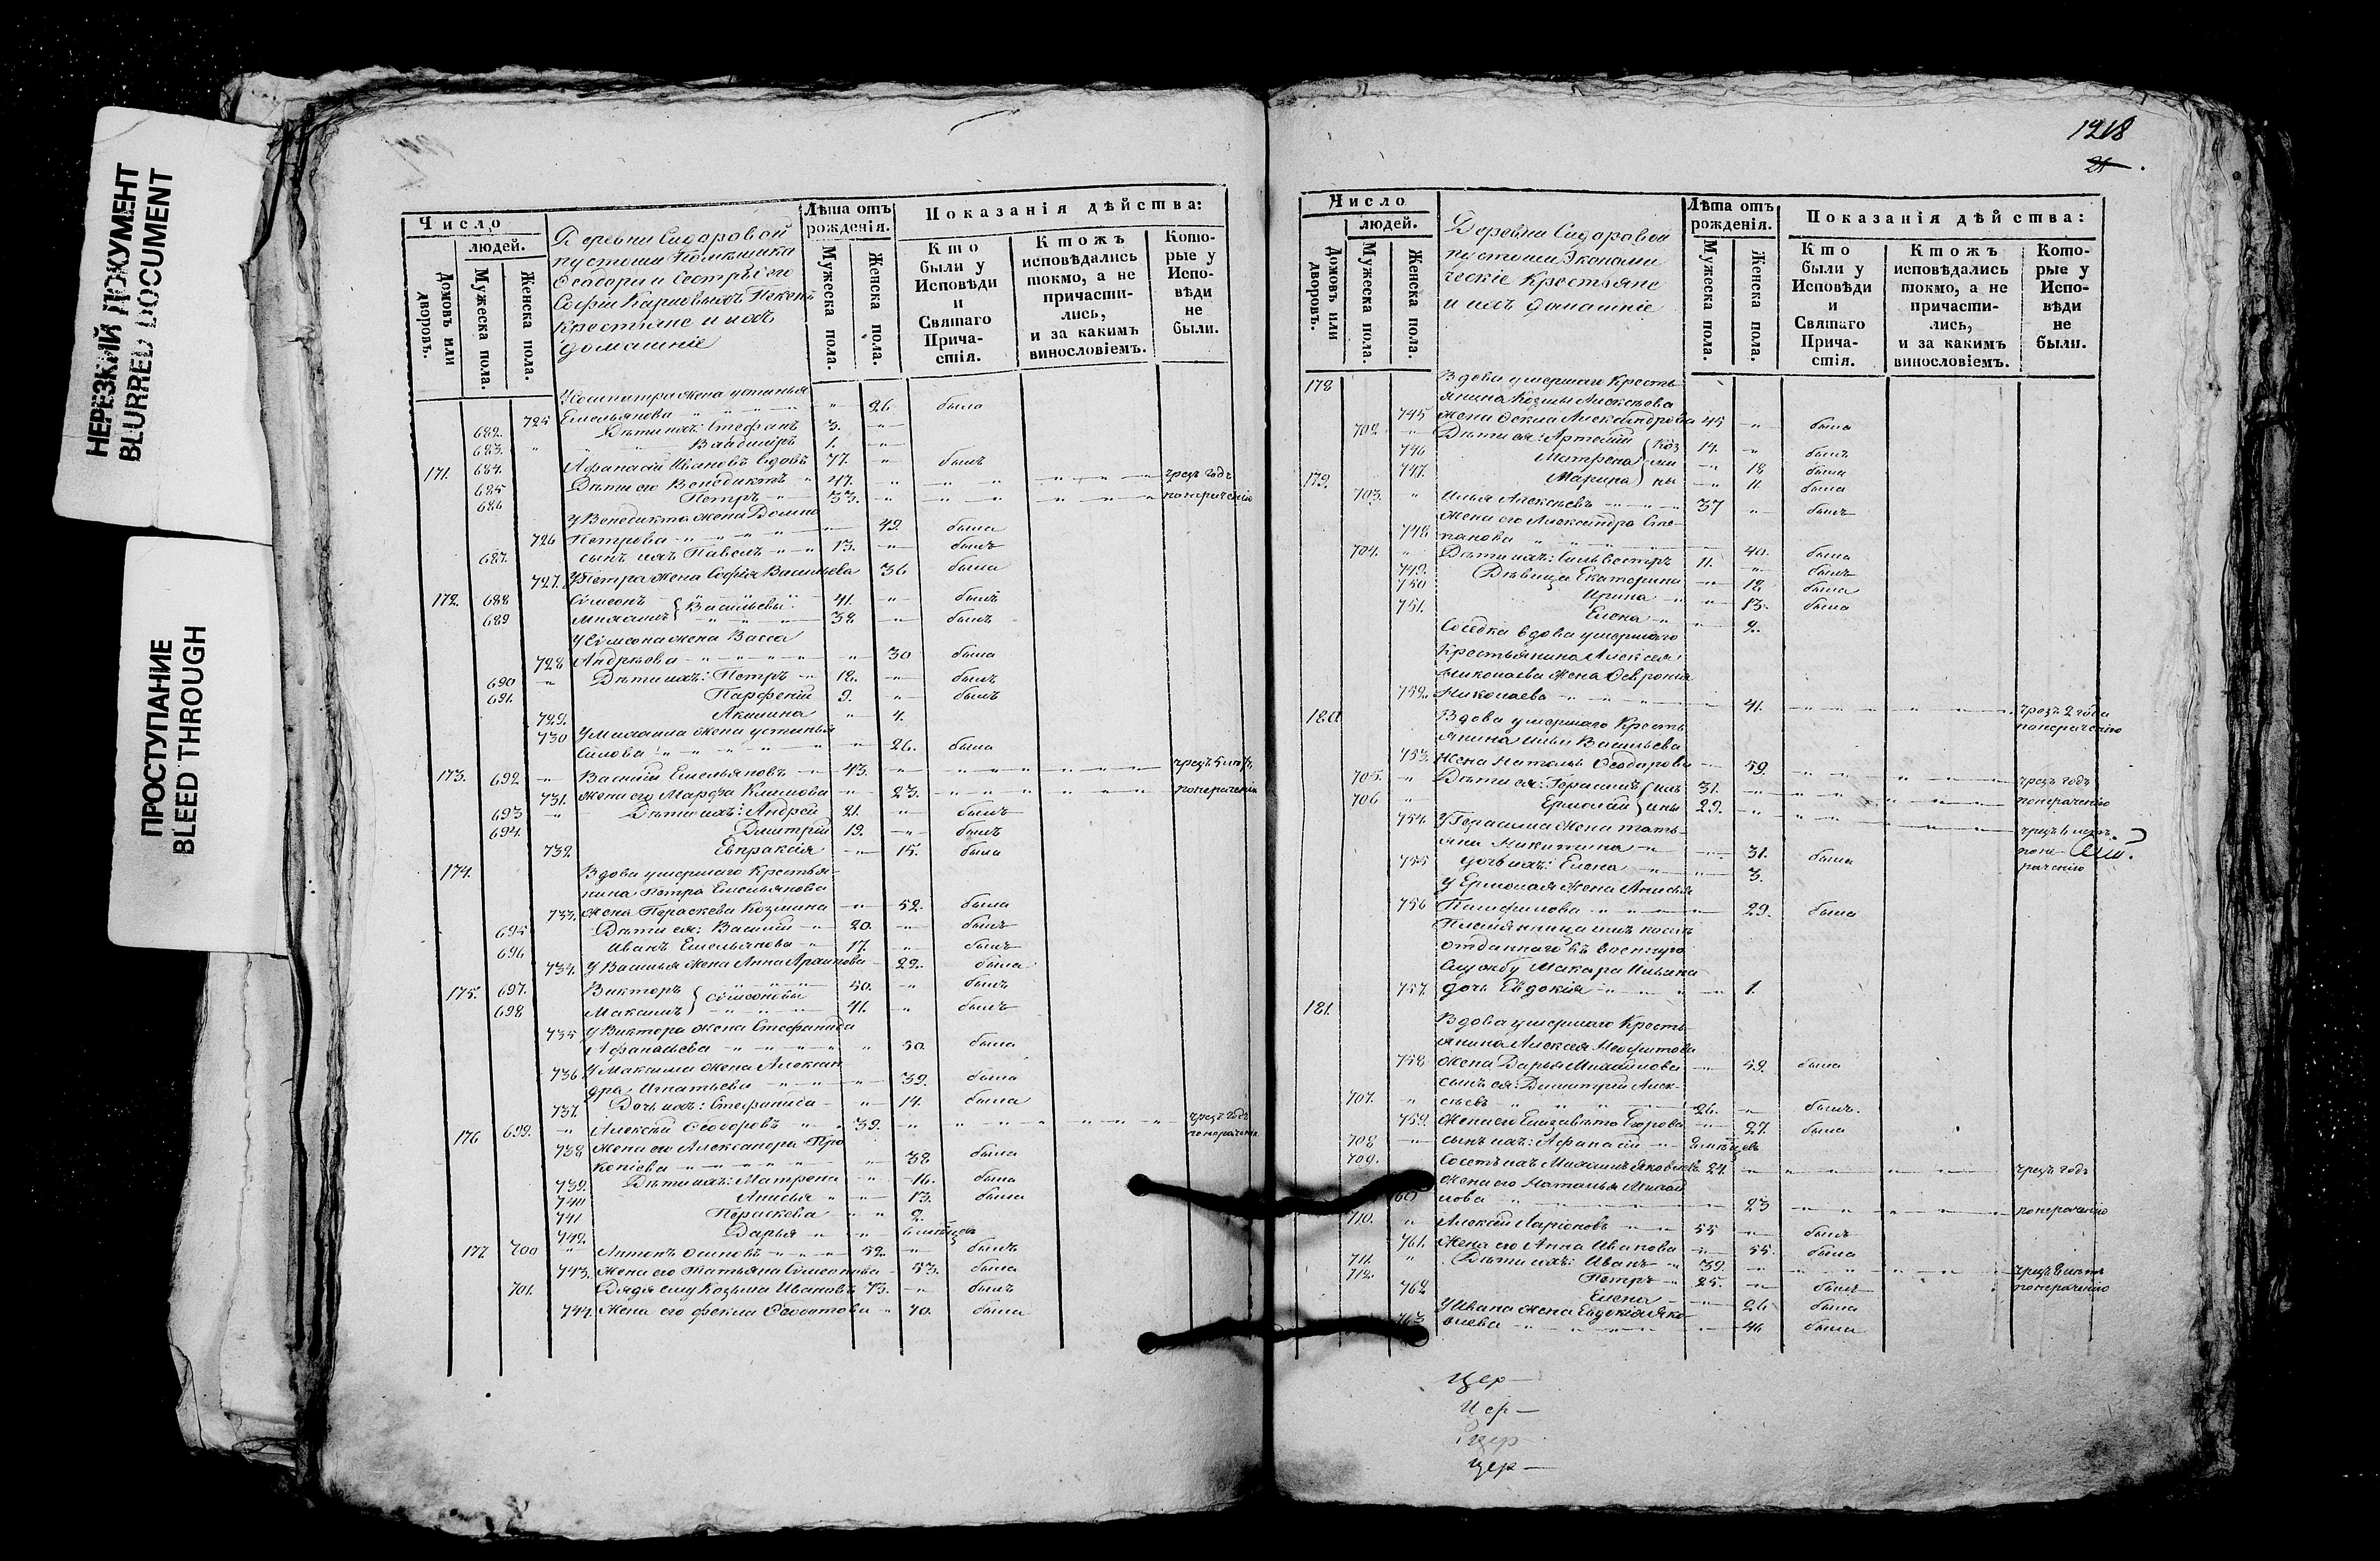 НЕРЕЗКИЙ ДОКУМЕНТ
BLURRED DOCUMENT
ПРОСТУПАНИЕ
BLEED THROUGH
Число
людей.
Домовъ или дворовъ.
Мужеска пола.
Женска пола.
Деревни Сидоровой
пустоши Помѣщика
Ѳеодора и Сестры его
Софіи
Крестьяне и ихъ
домашніе
Лѣта отъ рожденія.
Мужеска пола.
Женска пола.
Показанія дѣйства:
Кто были у Исповѣди и Святаго Причастія.
Ктожъ исповѣдались токмо, а не причастились, и за какимъ винословіемъ.
Которые у Исповѣди не были.
жена Устинья
725 Емельянова 26 была
682. Дѣти ихъ: Стефанъ 3.
683. Владиміръ 1.
171. 684. Афанасій Ивановъ вдовъ 77. былъ
685 Дѣти его Венедиктъ 47. чрезъ годъ
686 Петръ 33. понераченію
У Венедикта жена Домна
726 Петрова 49. была
687. сынъ ихъ Павелъ 13. былъ
727. У Петра жена Софія Васильева 36 была
172. 688 Сѵмеонъ Васильевы 41. былъ
689 Михаилъ 38. былъ
У Сѵмеона жена Васса
728 Андрѣева 30 была
690 Дѣти ихъ: Петръ 12. былъ
691. Парфеній 9. былъ
729. Акилина 4.
730 У Михаила жена Устинья
Силова 26. была
173. 692 Василій Емельяновъ 43. чрезъ 5 лѣтъ
731. жена его Марфа Климова 23. понераченію
693 Дѣти ихъ: Андрей 21. былъ
694. Димитрій 19. былъ
732. Евпраксія 15. была
174. Вдова умершаго Крестья-
нина Петра Емельянова
733. жена Параскева Козмина 52. была
695 Дѣти ея: Василій 20. былъ
696 Иванъ Емельянова 17. былъ
734. У Василья жена Анна Архипова 22. была
175. 697. Викторъ Сѵмеоновы 50. былъ
698 Максимъ 41. былъ
735 У Виктора жена Стефанида
Афанасьева 50. была
736. У Максима жена Алексан
дра Игнатьева 39. была
737. Дочь ихъ: Стефанида 14. была
176 699. Алексѣй Ѳеодоровъ 39. чрезъ годъ понераченію
738 жена его Александра Про
копіева 38 была
739. Дѣти ихъ: Матрена 16. была
740 Анисья 13. была
741 Параскева 2.
742. Дарья 6 мѣсяцовъ
177. 700 Антонъ Осиповъ 52. былъ
743. жена его Татьяна Сѵмеонова 53. была
701. Дядя ему Козьма Ивановъ 73. былъ
744. жена его Фекла Ѳеодотова 70. была
1218
21
Число
людей.
Домовъ или дворовъ.
Мужеска пола.
Женска пола.
Деревни Сидоровой
пустоши Экономи
ческіе Крестьяне
и ихъ домашніе
Лѣта отъ рожденія.
Мужеска пола.
Женска пола.
Показанія дѣйства:
Кто были у Исповѣди и Святаго Причастія.
Ктожъ исповѣдались токмо, а не причастились, и за какимъ винословіемъ.
Которые у Исповѣди не были.
178 Вдова умершаго Кресть-
янина Козмы Алексѣева
745 жена Ѳекла Александрова 45 была
702. Дѣти ея: Артемій Коз 14. былъ
746 Матрена ми 18 была
747. Марина ны 11. была
179. 703. Илья Алексѣевъ 37 былъ
жена его Александра Сте-
748 панова 40. была
704. Дѣти ихъ: Сильвестръ 11. былъ
749. Дѣвица Екатерина 18. была
750 Ирина 13. была
751. Елена 2.
Сосѣдка вдова умершаго
Крестьянина Алексѣя
Николаева жена Ѳевронія
752. Николаева 41. чрезъ 2 года понераченію
180. Вдова умершаго Кресть
янина Ильи Васильева
753. жена Наталья Ѳеодорова 59. чрезъ годъ
705. Дѣти ея: Герасимъ Иль 31. понераченію
706 Ермолай ины 29. чрезъ 6 лѣтъ поне-
754. У Герасима жена Тать-
яна Никитина 31. была раченію
755 дочь ихъ: Елена 3.
У Ермолая жена Анисья
756 Панфилова 29. была
Племянница имъ
отданнаго въ военную
Службу Макара Ильина
757. дочь Евдокія 1.
181. Вдова умершаго Кресть-
янина Алексѣя Неофитова
758 жена Дарья Михайлова 59. была
сынъ ея: Димитрій Алек-
707. сѣевъ 26. былъ.
759. жена его Елизавета Егорова 27. была
708 сынъ ихъ: Афанасій
709. Сосѣдъ ихъ Михаилъ Яковлевъ 24. чрезъ годъ
жена его Наталья Михай
лова 23 понераченію
710. Алексѣй Ларіоновъ 55 былъ
761. жена его Анна Иванова 55. была
711. Дѣти ихъ: Иванъ 39. чрезъ 8 лѣтъ
712. Петръ 25. былъ понераченію
762 Елена 26 была
У Ивана жена Евдокія Яко
763 влева 46 была
Цер—
Цер—
Цер
Цер—